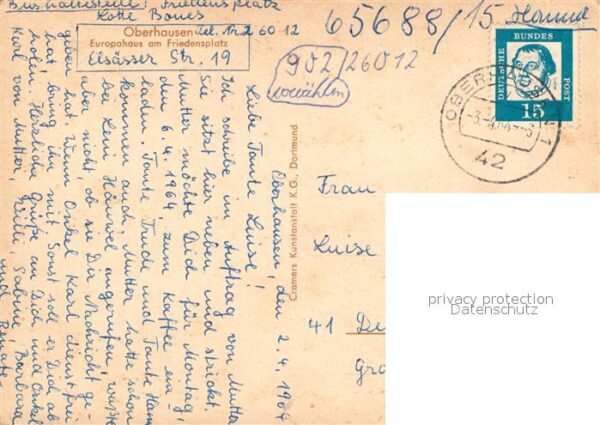 Bushaltestelle: Friedensplatz
Lotte Bones
Oberhausen Tel. Nr. 2 60 12
Europahaus am Friedensplatz
Elsässer Str. 19
65688/15 Hammel
902/26012
vorwählen
DEUTSCHE BUNDES POST
15
OBERHAUSEN
-3.-4.64.-
42
Oberhausen, den 2.4.1964
Liebe Tante Luise!
Ich schreibe im Auftrag von Mutter.
Sie sitzt hier neben und strickt.
Mutter möchte Dich für Montag,
den 6.4.1964, zum Kaffee ein-
laden. Tante Trude und Tante Hanni
kommen auch. Mutter hatte schon
bei Leni angerufen, wußte
aber nicht, ob sie Dir Nachricht ge-
geben hat. Wenn Onkel Karl dienstfrei
hat, bring ihn mit. Sonst soll er Dich ab-
holen. Herzliche Grüße an Dich und Onkel
Karl von Mutter, Willi, Sabine, Barbara
und Renate.
Cramers Kunstanstalt K.G., Dortmund
Frau
Luise
41 Du
Gro
privacy protection
Datenschutz